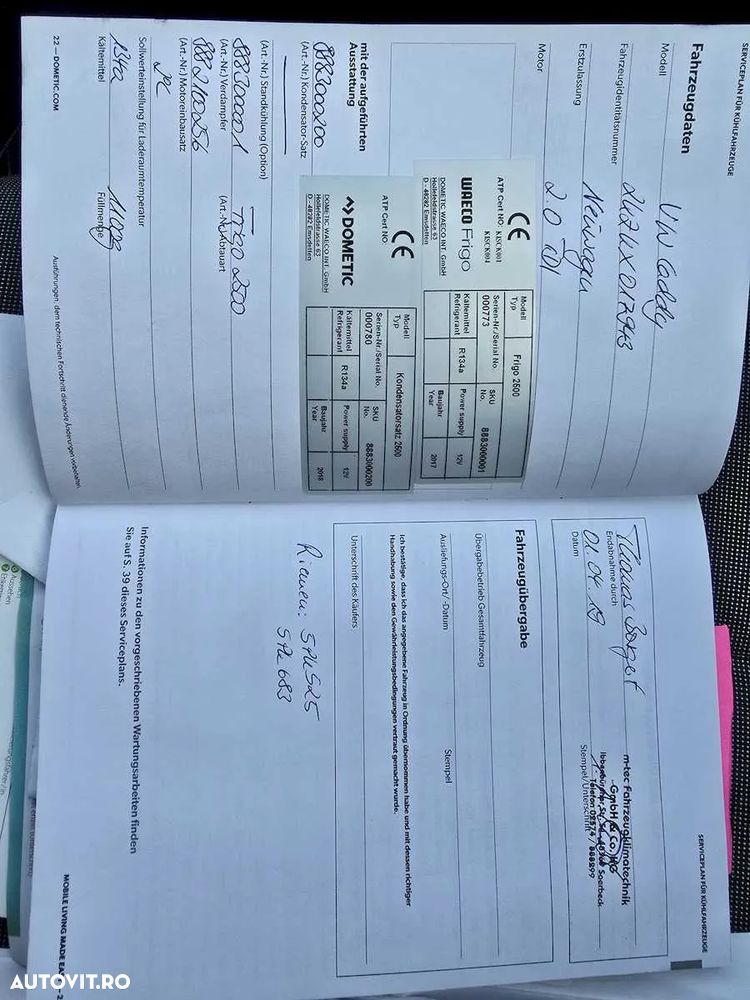 SERVICEPLAN FÜR KÜHLFAHRZEUGE
Fahrzeugdaten
VW Caddy
Modell
Fahrzeugidentitätsnummer
Neuwagen
Erstzulassung
2.0
Motor
CE
ATP Cert NO:
WAECO Frigo
DOMETIC WAECO INT. GmbH
Hollefeldstrasse 63
D - 48282 Emsdetten
Modell
Typ
Frigo 2500
Serien-Nr./Serial No.
000773
SKU
No.
8883000001
Kältemittel
Refrigerant
R134a
Power supply
12V
Baujahr
Year
2017
CE
ATP Cert NO:
DOMETIC
DOMETIC WAECO INT. GmbH
Hollefeldstrasse 63
D - 48282 Emsdetten
Modell
Typ
Kondensatorsatz 2500
Serien-Nr./Serial No.
000780
SKU
No.
8883000200
Kältemittel
Refrigerant
R134a
Power supply
12V
Baujahr
Year
2018
mit der aufgeführten
Ausstattung
8883000200
(Art.-Nr.) Kondensator-Satz
(Art.-Nr.) Standkühlung (Option)
8883000001
Frigo 2500
(Art.-Nr.) Verdampfer
8882100256
(Art.-Nr.) Motoreinbausatz
Sollverteinstellung für Laderaumtemperatur
134a
1100g
Kältemittel
Füllmenge
Ausführungen, dem technischen Fortschritt dienende Änderungen vorbehalten.
22 — DOMETIC.COM
SERVICEPLAN FÜR KÜHLFAHRZEUGE
Thomas
Endabnahme durch
01.04.19
Datum
m-tec Fahrzeugklimatechnik
GmbH & Co. KG
Saerbeck
Telefon 02574 / 888299
Stempel/Unterschrift
Fahrzeugübergabe
Übergabebetrieb Gesamtfahrzeug
Ausliefungs-Ort/ -Datum
Stempel
Ich bestätige, dass ich das angegebene Fahrzeug in Ordnung übernommen habe und mit dessen richtiger
Handhabung sowie den Gewährleistungsbedingungen vertraut gemacht wurde.
Unterschrift des Käufers
Riemen: 5PK525
5PK683
Informationen zu den vorgeschriebenen Wartungsarbeiten finden
Sie auf S. 39 dieses Serviceplans.
MOBILE LIVING MADE
AUTOVIT.RO